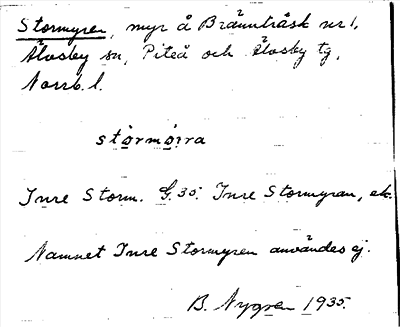 Stormyren, myr å Brännträsk nr 1,
Älvsby sn, Piteå och Älvsby tg,
Norrb. l.
stormyra
Inre Storm. G. 35. Inre Stormyran, ek.
Namnet Inre Stormyren användes ej.
B. Nygren 1935.